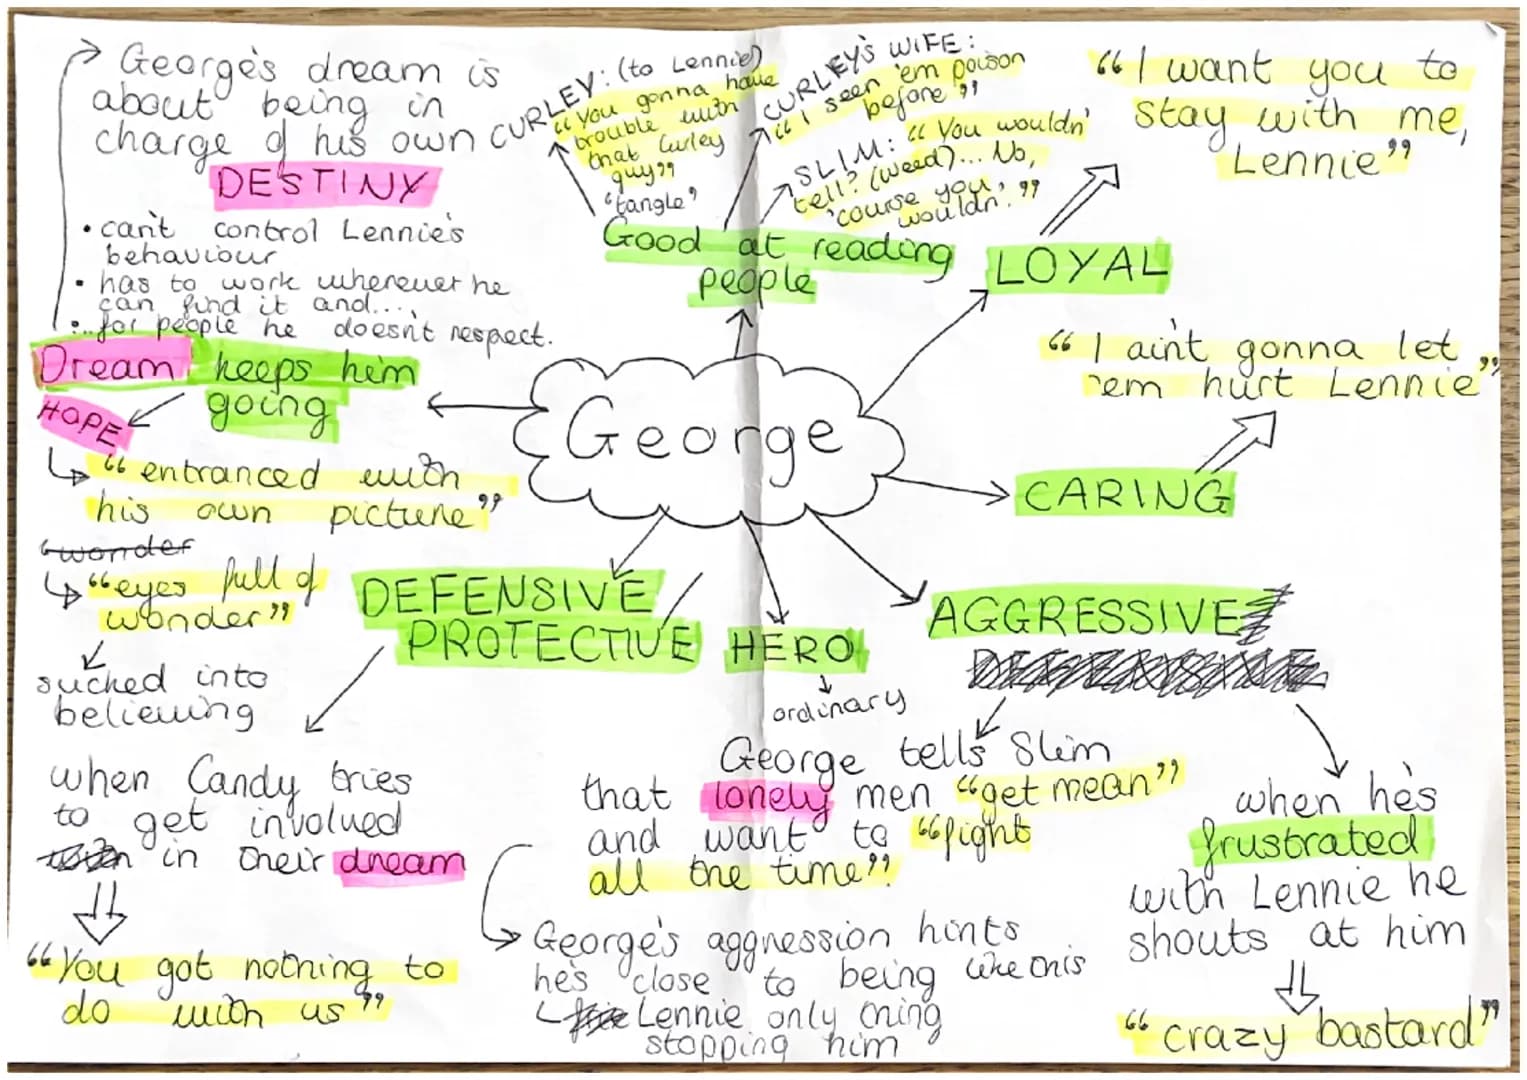 George's dream is
about being in
charge of his own
DESTINY
• can't control Lennie's
behaviour
• has to work wherever he
can find it and...
...for people he doesn't respect.
Dream keeps him
going
HOPE
"entranced with
his own picture"
"wonder
"eyes full of
wonder"
sucked into
believing
CURLEY: (to Lennie)
"You gonna have
trouble with
that Curley
guy"
'tangle'
CURLEY'S WIFE:
"I seen 'em poison
before"
SLIM: "You wouldn'
tell? (Weed)... No,
'course you
wouldn'."
Good at reading
people
LOYAL
"I want you to
stay with me,
Lennie"
George
"I ain't gonna let
'em hurt Lennie"
CARING
DEFENSIVE
PROTECTIVE
when Candy tries
to get involved
in their dream
"You got nothing to
do with us"
HERO
ordinary
AGGRESSIVE
George tells Slim
that lonely men "get mean"
and want to "fight
all the time"
George's aggression hints
he's close to being like this
Lennie only thing
stopping him
when he's
frustrated
with Lennie he
shouts at him
"crazy bastard"